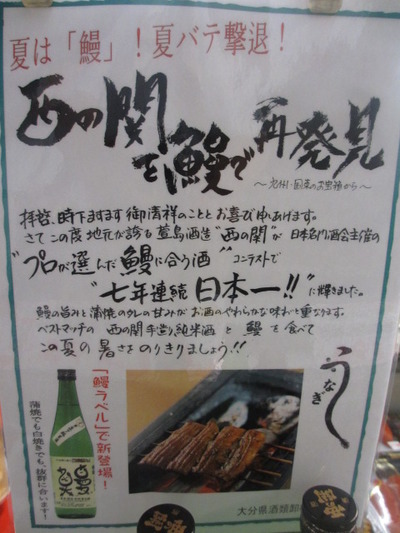 夏は「鰻」！夏バテ撃退！
西の関
と鰻で
再発見
～九州・国東のお宝箱から～
拝啓、時下ますます御清祥のこととお喜び申しあげます。
さてこの度地元が誇る萱島酒造"西の関"が日本名門酒会主催の
"プロが選んだ鰻に合う酒"コンテストで
"七年連続日本一!!"に輝きました。
鰻の旨みと蒲焼のタレの甘みがお酒のやわらかな味わと重なります。
ベストマッチの西の関手造り純米酒と鰻を食べて
この夏の暑さをのりきりましょう!!
うなぎ
「鰻ラベル」で新登場！
蒲焼でも白焼きでも、抜群に合います！
大分県酒類卸